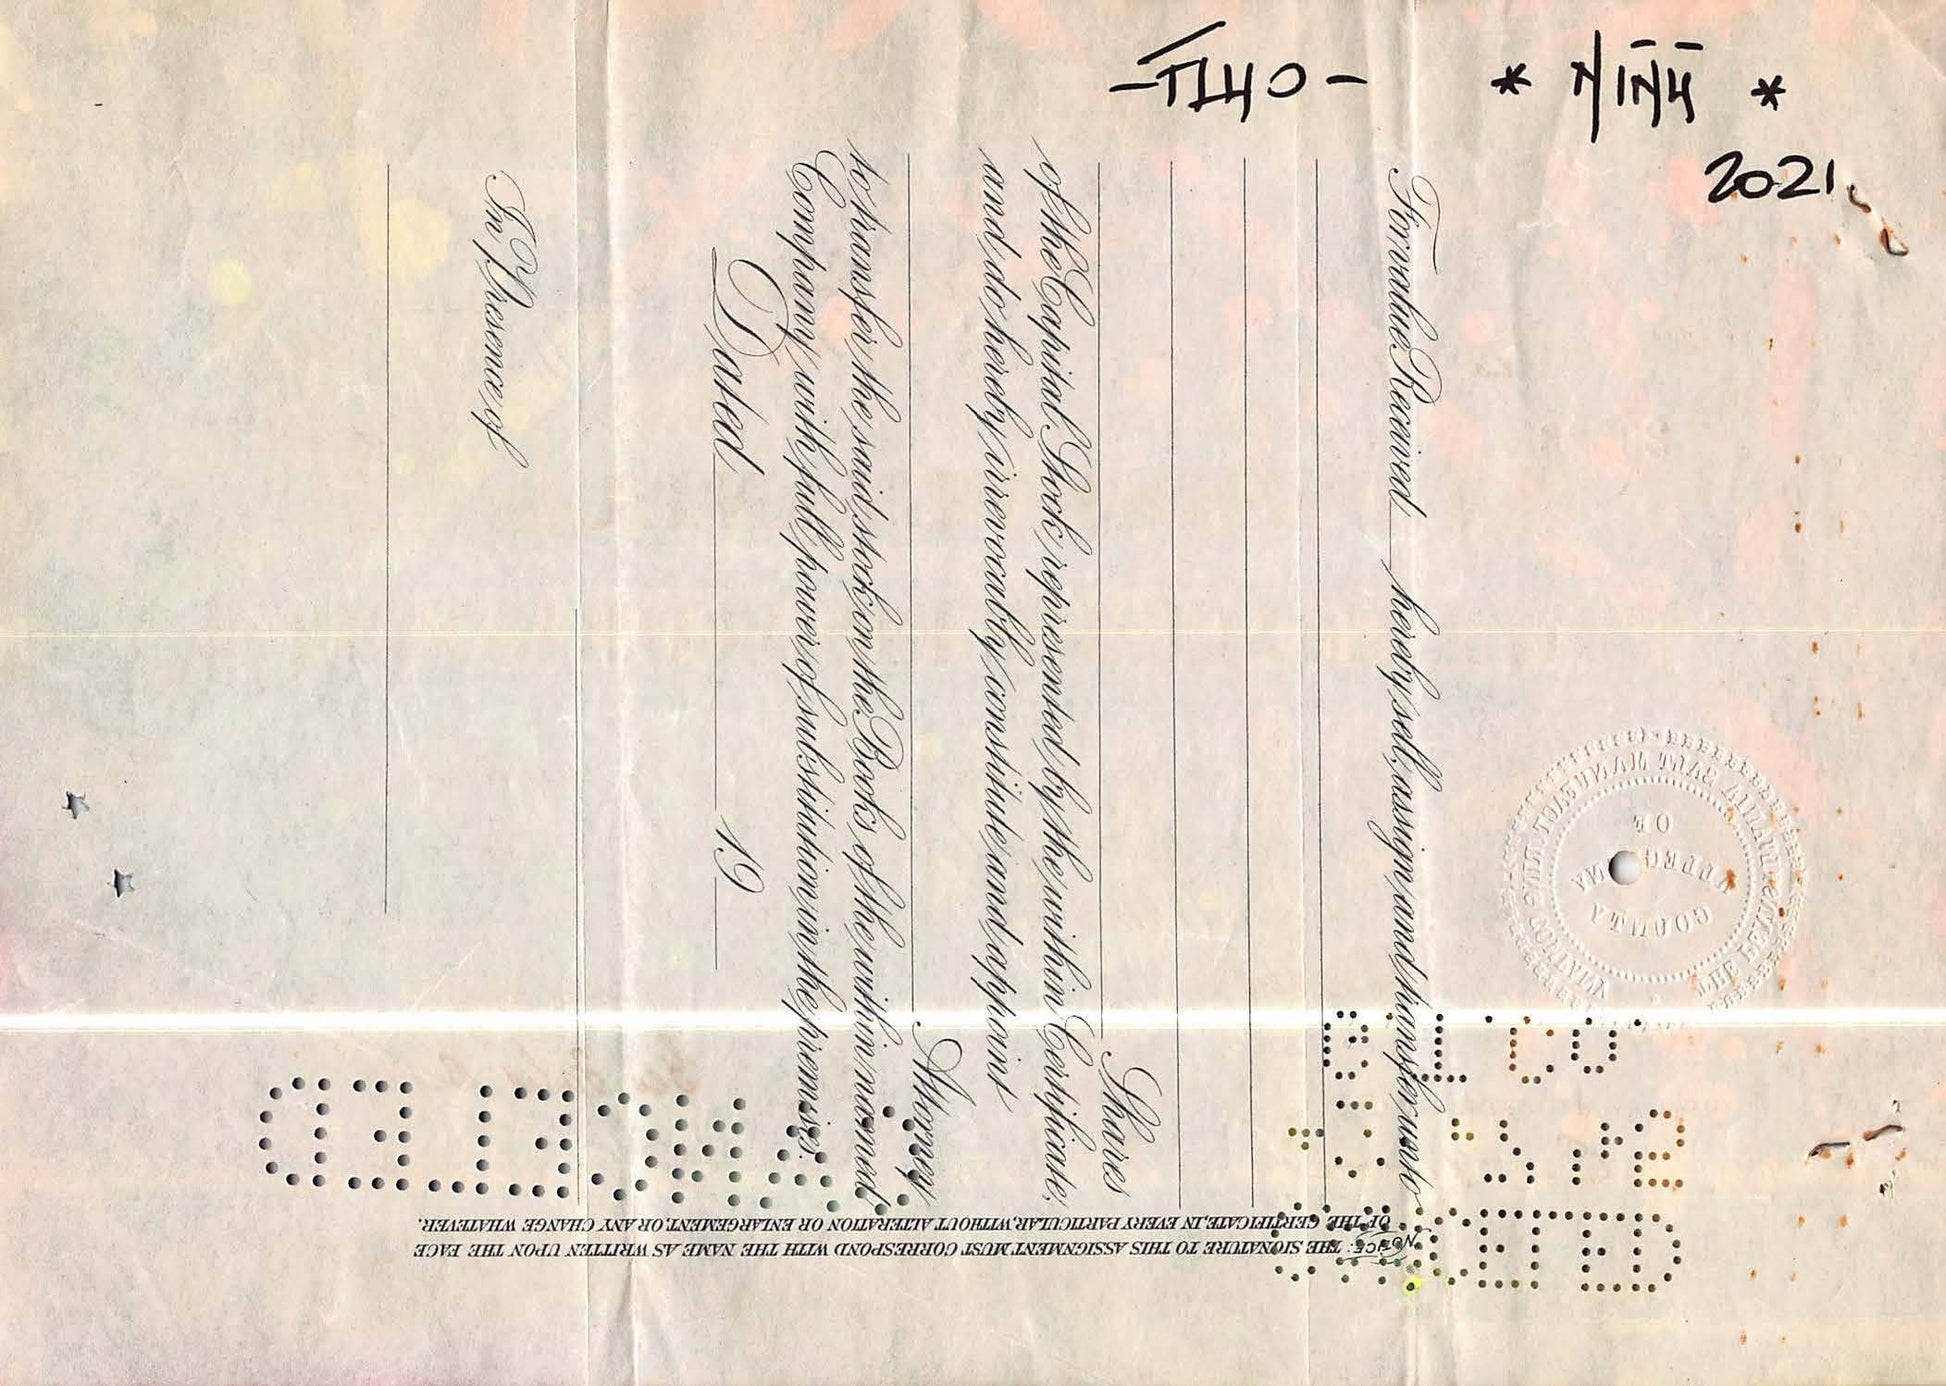 2021
For value Received hereby sell, assign and transfer unto
Shares
of the Capital Stock represented by the within Certificate,
and do hereby irrevocably constitute and appoint
Attorney
to transfer the said stock on the Books of the within named
Company with full power of substitution in the premises.
Dated 19
In Presence of
NOTICE: THE SIGNATURE TO THIS ASSIGNMENT MUST CORRESPOND WITH THE NAME AS WRITTEN UPON THE FACE
OF THE CERTIFICATE, IN EVERY PARTICULAR, WITHOUT ALTERATION OR ENLARGEMENT, OR ANY CHANGE WHATEVER.
CANCELLED